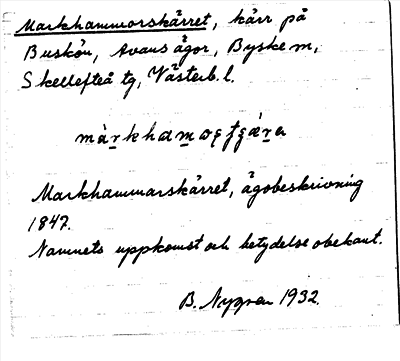 Markhammorskärret, kärr på
Buskön, Avans ägor, Byske m,
Skellefteå tg, Västerb. l.
Markhammarskärret, ägobeskrivning
1847.
Namnets uppkomst och betydelse obekant.
B. Nygren 1932.